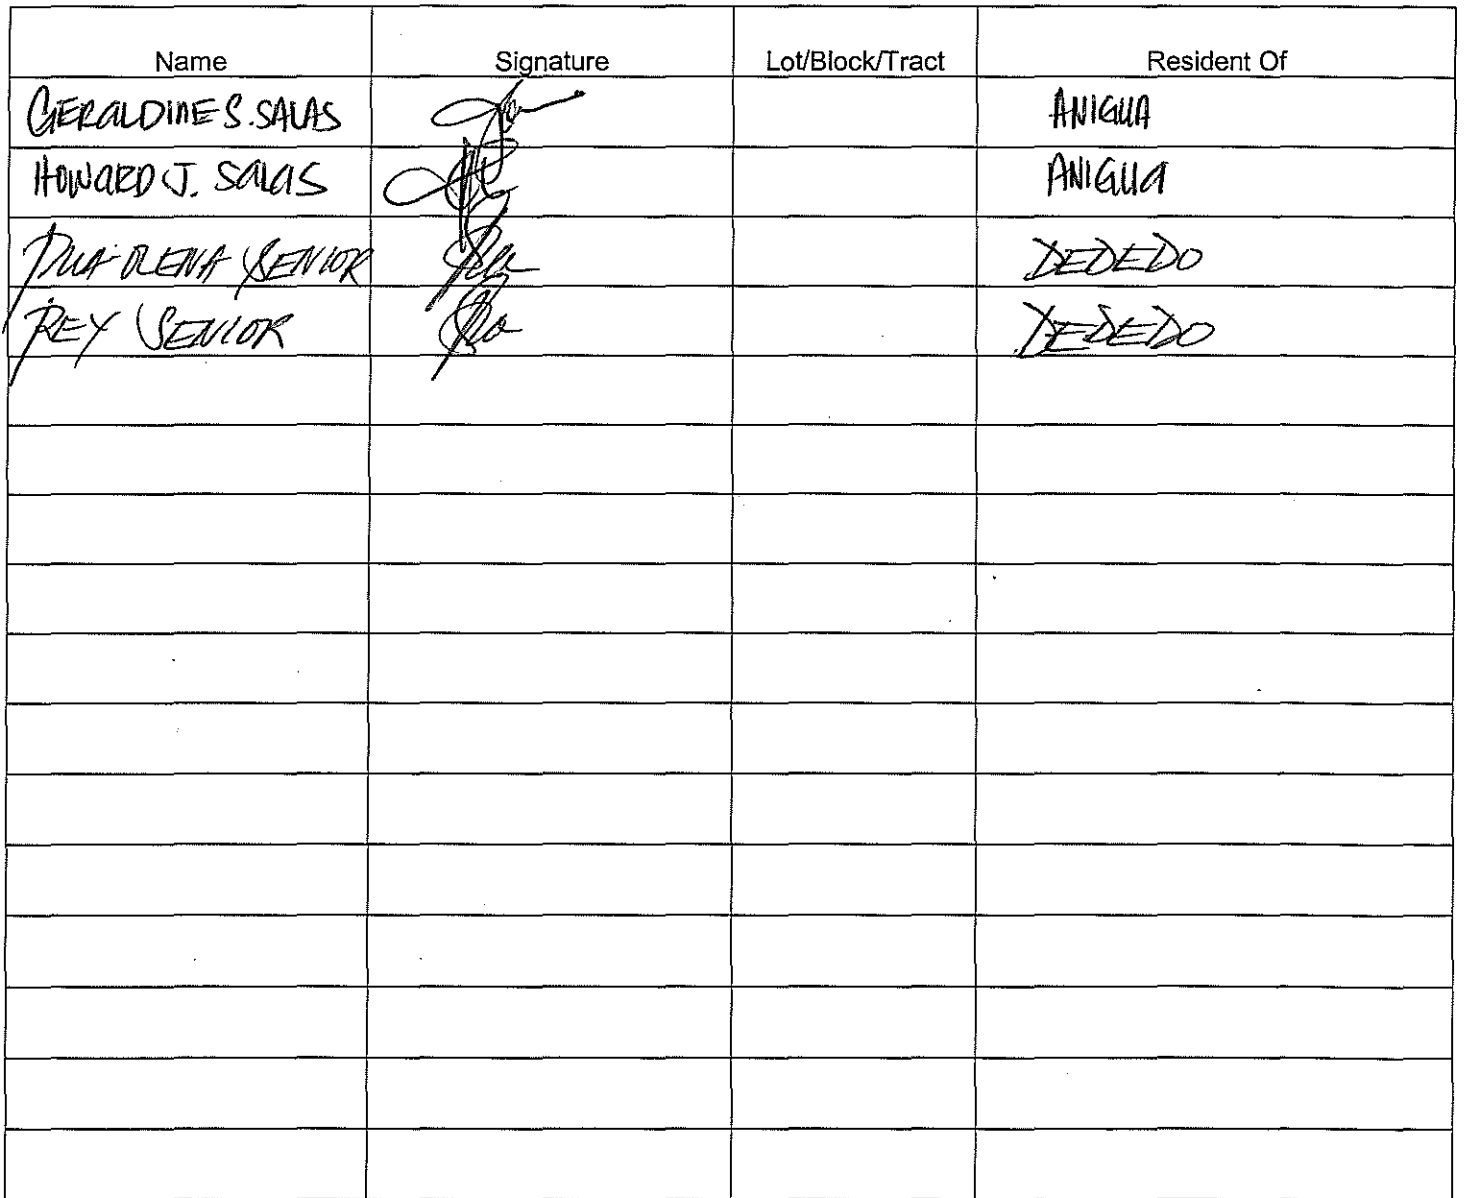 Name Signature Lot/Block/Tract Resident Of
GERALDINE S. SALAS ANIGUA
HOWARD J. SALAS ANIGUA
SENIOR DEDEDO
REY SENIOR DEDEDO